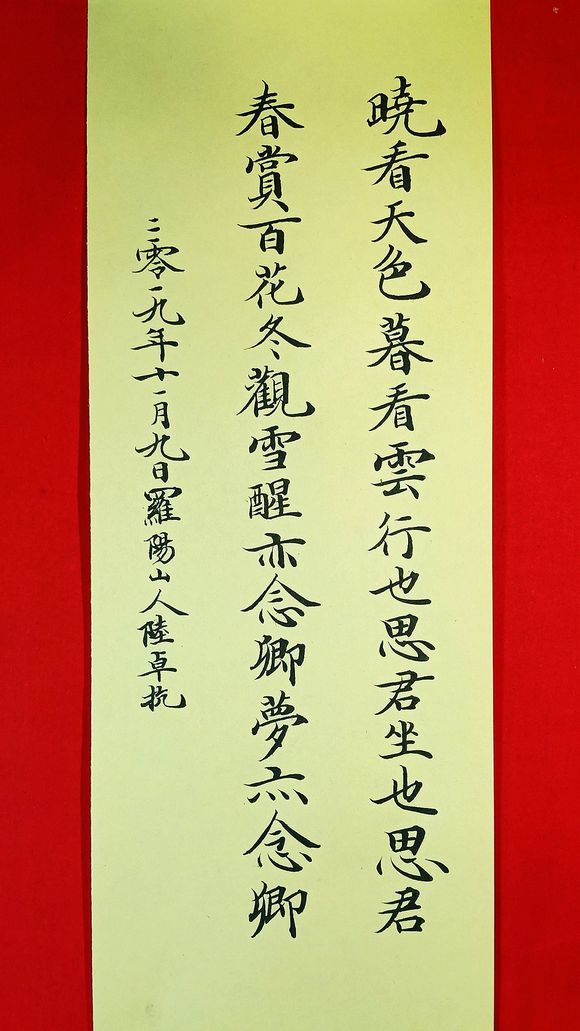 曉看天色暮看雲行也思君坐也思君
春賞百花冬觀雪醒亦念卿夢亦念卿
二零一九年十一月九日羅陽山人陸卓抗